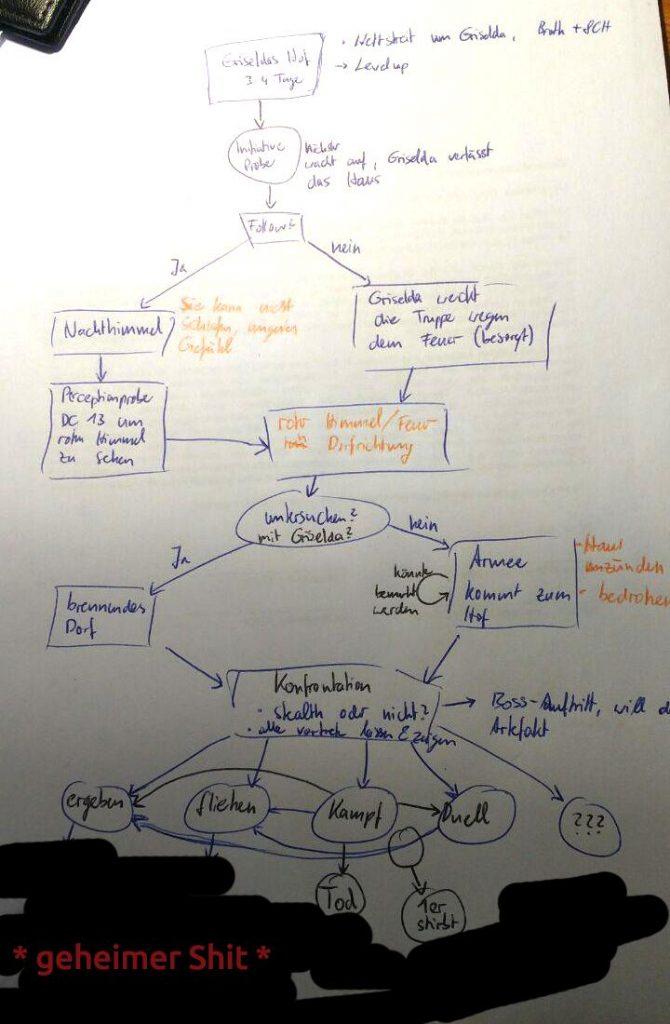 Griseldas Hof
3-4 Tage
• Wettstreit um Griselda,
→ Levelup
Initiative
Probe
wacht auf, Griselda verlässt
das Haus
Follow?
Ja
nein
Nachthimmel
Sie kann nicht
schlafen, ungutes
Gefühl
Griselda weckt
die Truppe wegen
dem Feuer (besorgt)
Perceptionprobe
DC 13 um
roten Himmel
zu sehen
roter Himmel/Feuer
Dorfrichtung
untersuchen?
mit Griselda?
Ja
nein
brennendes
Dorf
könnte
bemerkt
werden
Armee
kommt zum
Hof
- Haus
anzünden
- bedrohen
Konfrontation
• stealth oder nicht?
• alle vortreten lassen & zeigen
→ Boss-Auftritt, will d
Artefakt
ergeben
fliehen
Kampf
Duell
???
Tod
1er
stirbt
* geheimer Shit *